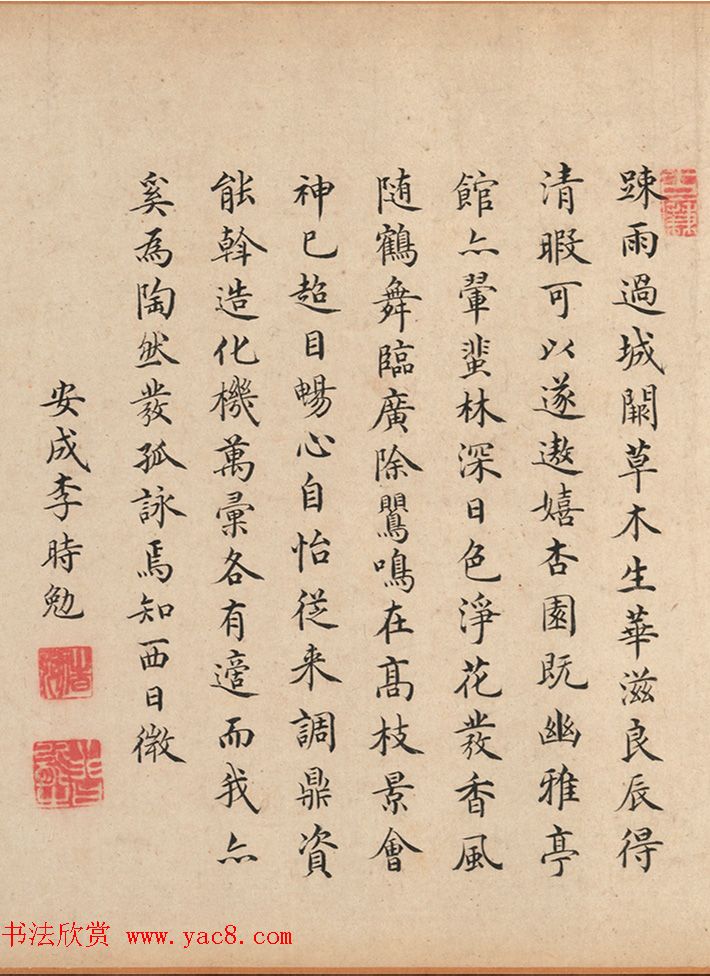 踈雨過城闕草木生華滋良辰得
清暇可以遂遨嬉杏園既幽雅亭
館亦翬蜚林深日色淨花發香風
随鶴舞臨廣除鸎鳴在髙枝景會
神已超目暢心自怡従来調鼎資
能斡造化機萬彙各有適而我亦
奚為陶然發孤詠焉知西日微
安成李時勉
书法欣赏 www.yac8.com